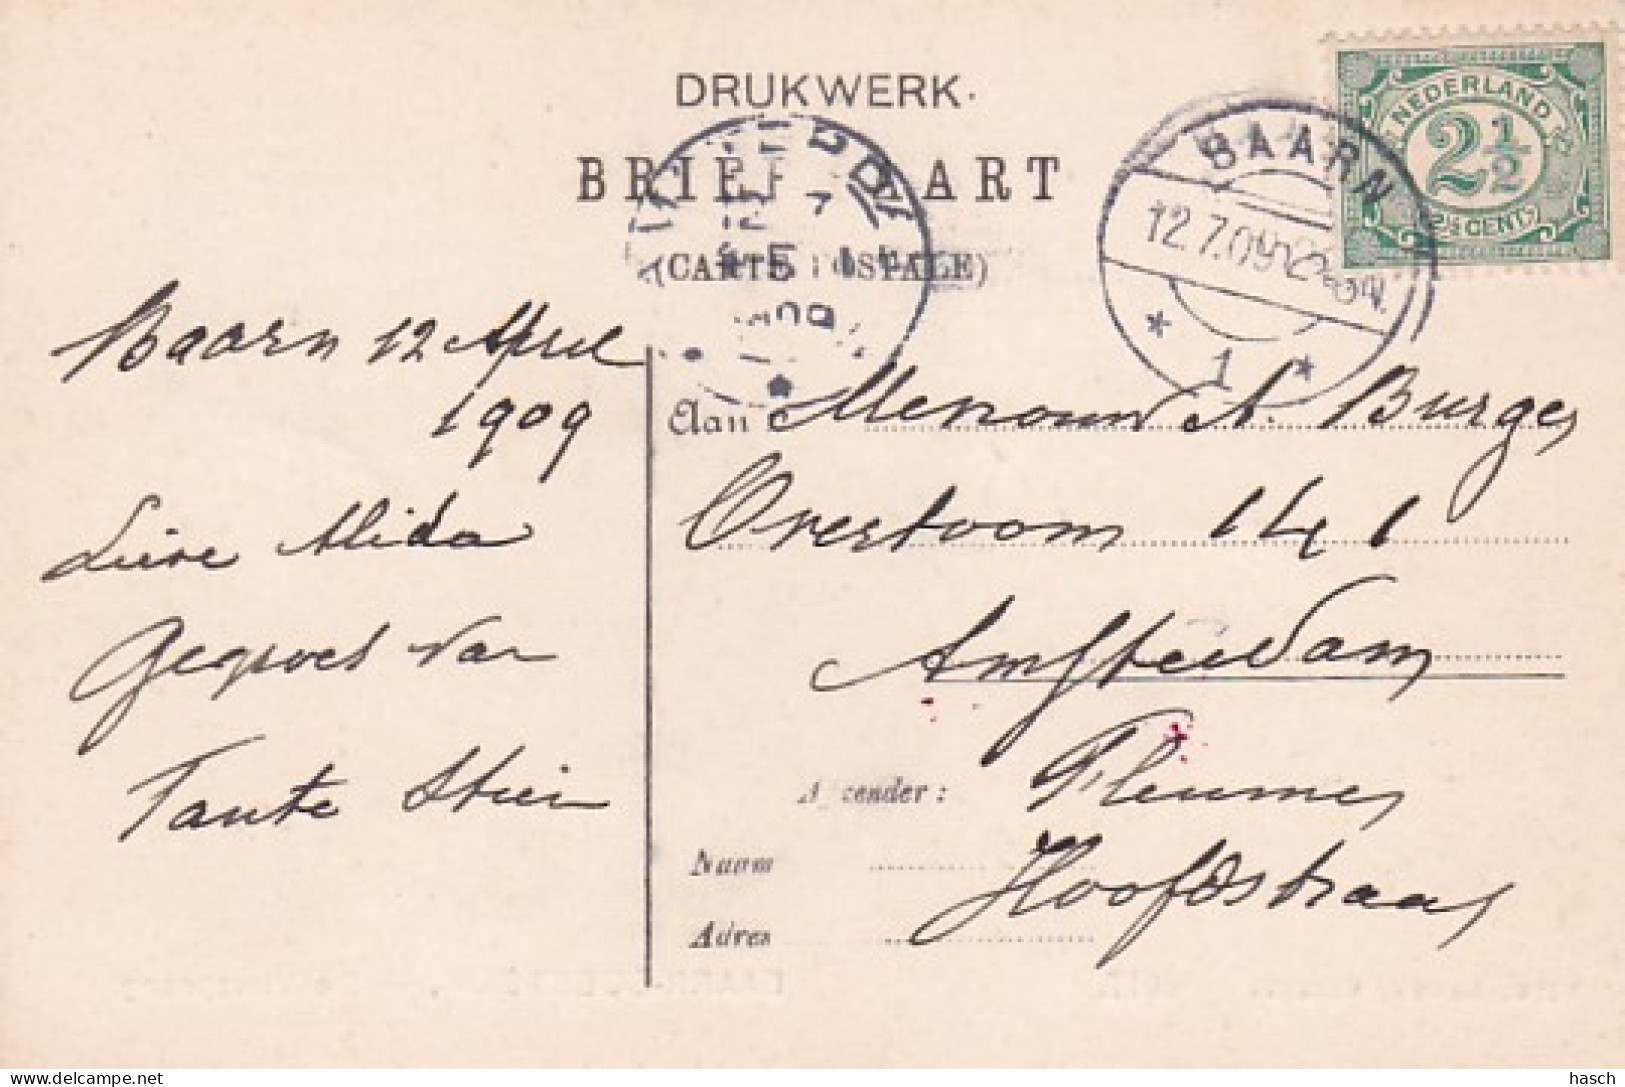 DRUKWERK.
BRIEFKAART
(CARTE POSTALE)
NEDERLAND
2½
2½ CENT
BAARN
12.7.09
* 1 *
Baarn 12 April
1909
Lieve Alida
Gegroet van
Tante Stien
Aan Mevrouw A. Burges
Overtoom 141
Amsterdam
Afzender: Pleumes
Naam
Adres Hoofdstraat
hasch
delcampe.net